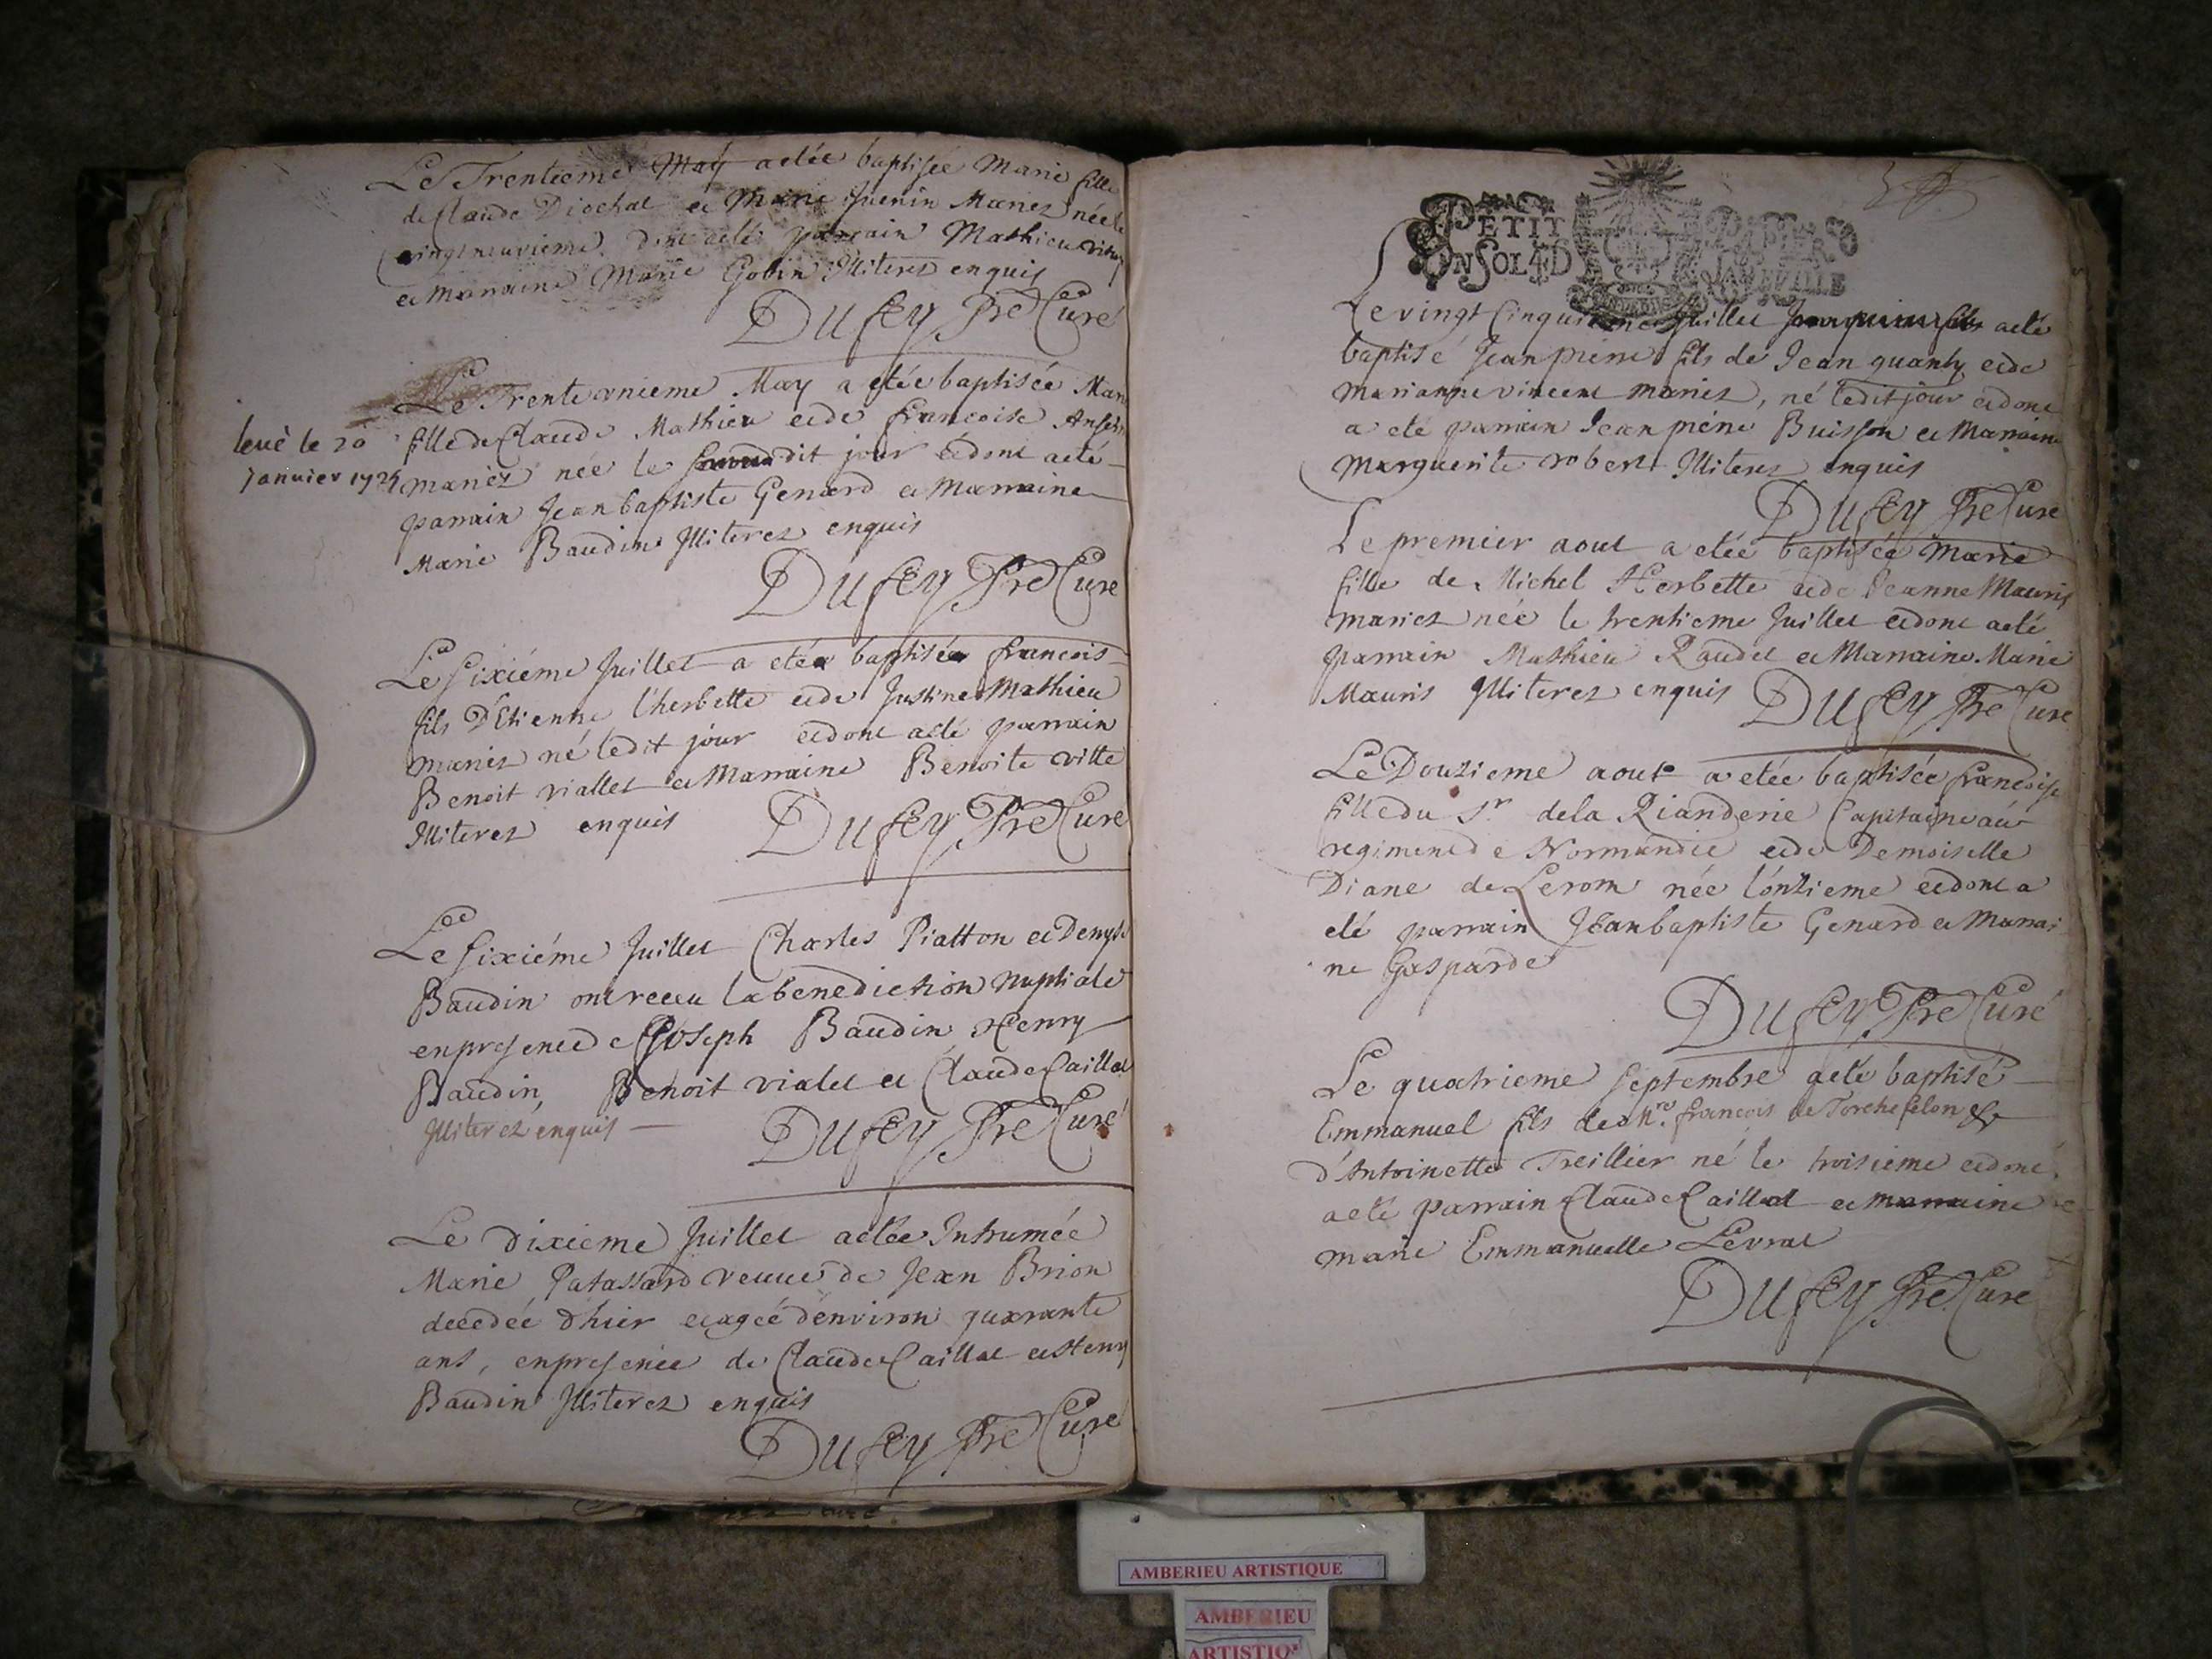 Le Trentieme May a etée baptisée Marie fille
de Claude Diochat et Marie Juenin Mariez née le
vingt neuvieme dont a eté parrain Mathieu
et Marraine Marie Gobin Illiterez enquis
Dufey Pre Curé
Le Trente vnieme May a etée baptisée
fille de Claude Mathieu et de francoise
mariez née le dit jour et dont a eté
parrain Jean baptiste Genard et Marraine
Marie Baudin Illiterez enquis
Dufey Pre Cure
levé le 20
Janvier
Le sixiéme Juillet a eté baptisé francois
fils D'Etienne l'herbette et de Justine Mathieu
mariez né ledit jour et dont a eté parrain
Benoit viallet et Marraine Benoite ville
Illiterez enquis
Dufey Pre Cure
Le sixiéme Juillet Charles Piatton et Denyse
Baudin ont receu la benediction nuptiale
en presence de Joseph Baudin Henry
Baudin, Benoit vialet et Claude Caillat
Illiterez enquis
Dufey Pre Curé
Le dixieme Juillet a etée Inhumée
Marie Patassard veuue de Jean Brion
decedée d'hier et agée d'environ quarante
ans, en presence de Claude Caillat et Henry
Baudin Illiterez enquis
Dufey Pre Curé
PETIT PAPIER
UN SOL 4 D
Le vingt Cinquieme Juillet a eté
baptisé Jean pierre fils de Jean quanty et de
Marianne vincent mariez, né ledit jour et dont
a eté parrain Jean pierre Buisson et Marraine
Marguerite robert Illiterez enquis
Dufey Pre Cure
Le premier aout a etée baptisée Marie
fille de Michel Herbette et de Jeanne Mauris
mariez née le trentieme Juillet et dont a eté
parrain Mathieu Raudet et Marraine Marie
Mauris Illiterez enquis
Dufey Pre Cure
Le Douzieme aout a etée baptisée francoise
fille du Sr de la Rianderie Capitaine au
regiment de Normandie et de Demoiselle
Diane de Lerom née l'onzieme et dont a
eté parrain Jean baptiste Genard et Marrai
ne Gasparde
Dufey Pre Curé
Le quatrieme Septembre a eté baptisé
Emmanuel fils de Mre. francois de Torchefelon &
d'Antoinette Treillier né le troisieme et dont
a eté parrain Claude Caillat et marraine
marie Emmanuelle Levrat
Dufey Pre Cure
AMBERIEU ARTISTIQUE
AMBERIEU
ARTISTIQ